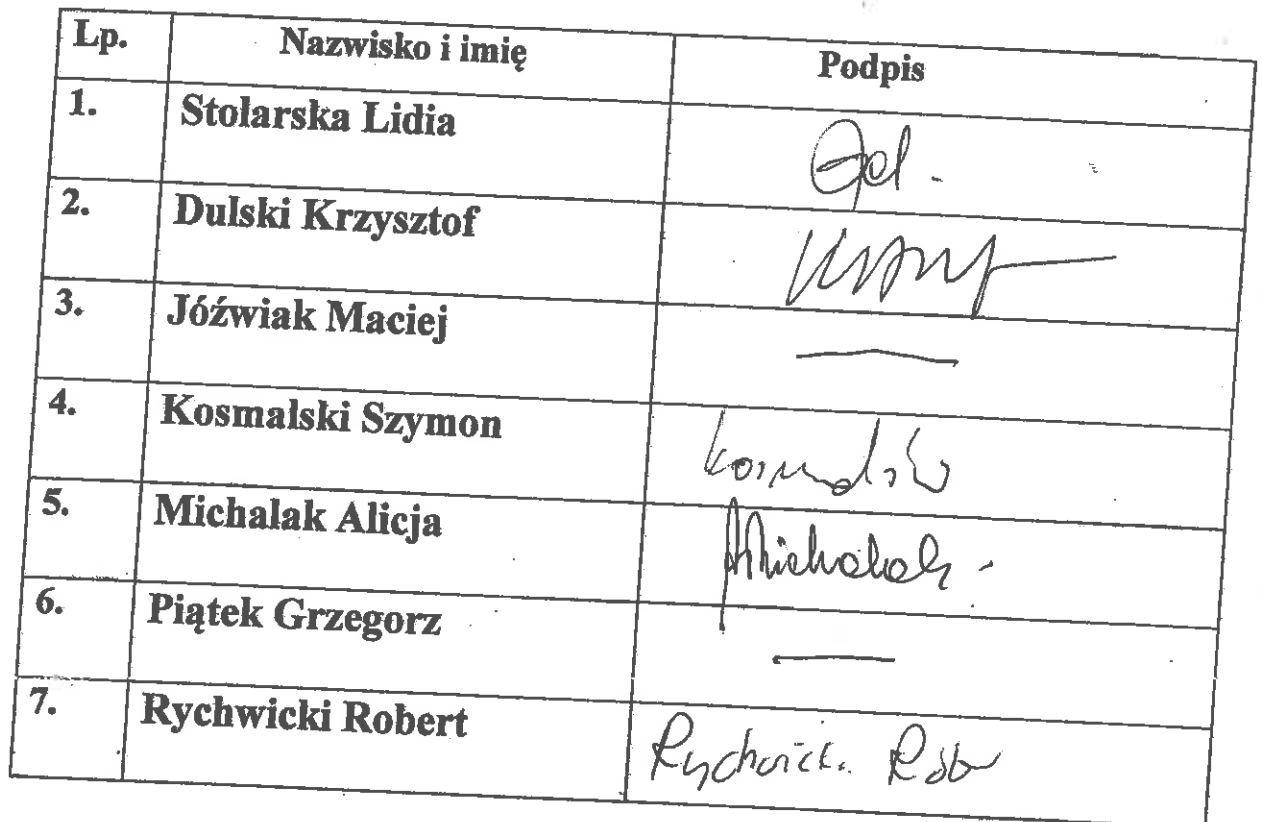 Lp. Nazwisko i imię Podpis
1. Stolarska Lidia
2. Dulski Krzysztof
3. Jóźwiak Maciej —
4. Kosmalski Szymon
5. Michalak Alicja AMichalak -
6. Piątek Grzegorz —
7. Rychwicki Robert